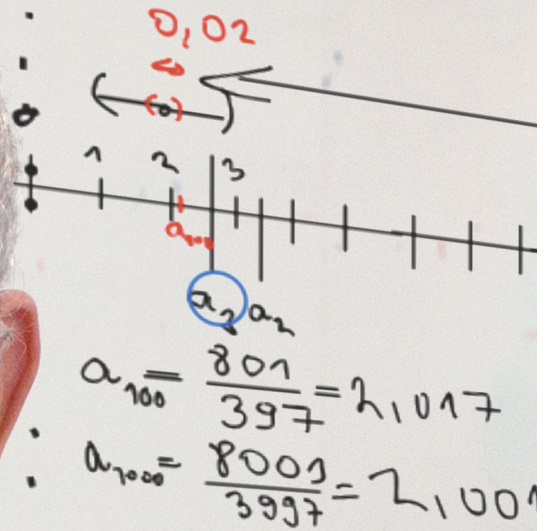 0,02
1 2 3
a₁₀₀
a₃ a₂
a₁₀₀ = 801/397 = 2,017
a₁₀₀₀ = 8001/3997 = 2,001